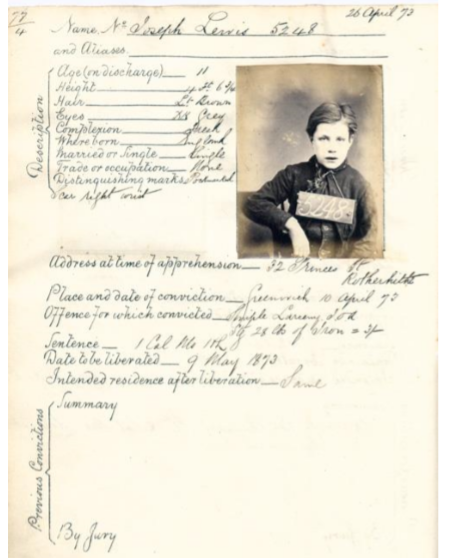 77/4
26 April 73
Name, No. Joseph Lewis 5248
and Aliases
Description
Age (on discharge) 11
Height 4 ft 6 3/4
Hair Lt Brown
Eyes Grey
Complexion Fresh
Where born England
Married or Single Single
Trade or occupation None
Distinguishing marks
Scar right wrist
5248
Address at time of apprehension 32 Princes St
Rotherhithe
Place and date of conviction Greenwich 10 April 73
Offence for which convicted Simple Larceny
28 lb of Iron
Sentence 1 Cal Mo
Date to be liberated 9 May 1873
Intended residence after liberation Same
Previous Convictions
Summary
By Jury